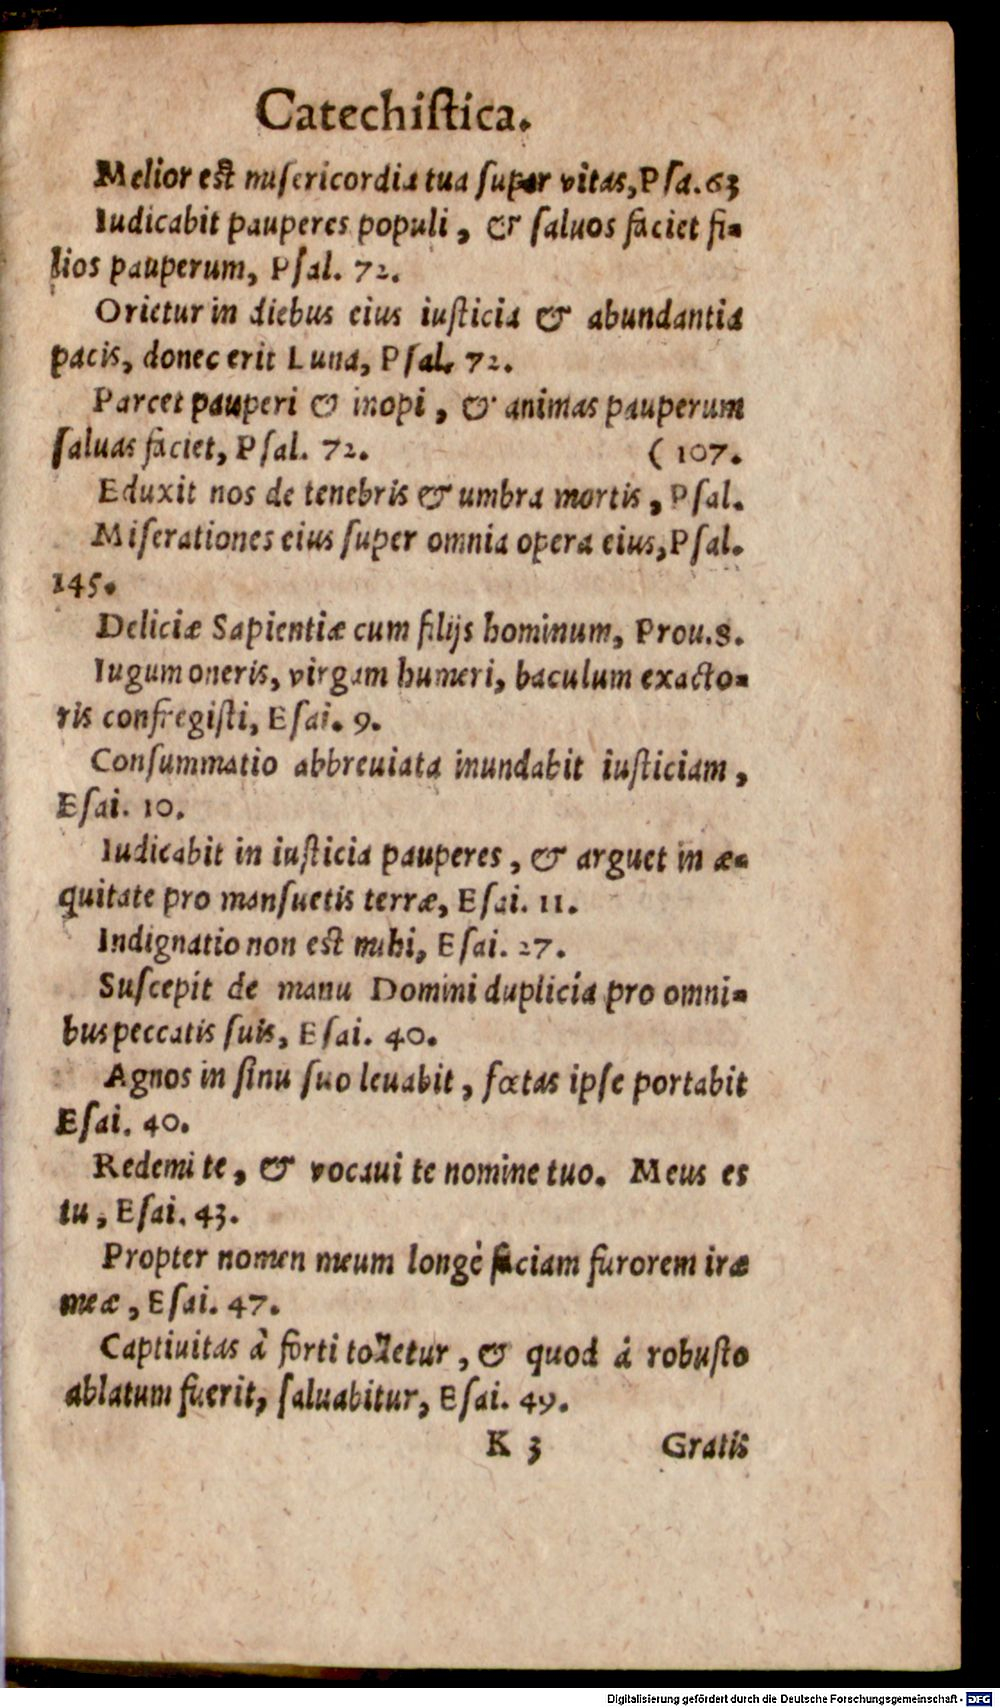 Catechiſtica.
Melior eſt miſericordia tua ſuper vitas, Pſa. 63
Iudicabit pauperes populi, & ſaluos faciet fi-
lios pauperum, Pſal. 72.
Orietur in diebus eius iuſticia & abundantia
pacis, donec erit Luna, Pſal. 72.
Parcet pauperi & inopi, & animas pauperum
ſaluas faciet, Pſal. 72. (107.
Eduxit nos de tenebris & umbra mortis, Pſal.
Miſerationes eius ſuper omnia opera eius, Pſal.
145.
Deliciæ Sapientiæ cum filijs hominum, Prou. 8.
Iugum oneris, virgam humeri, baculum exacto-
ris confregiſti, Eſai. 9.
Conſummatio abbreuiata inundabit iuſticiam,
Eſai. 10.
Iudicabit in iuſticia pauperes, & arguet in æ-
quitate pro manſuetis terræ, Eſai. 11.
Indignatio non eſt mihi, Eſai. 27.
Suſcepit de manu Domini duplicia pro omni-
bus peccatis ſuis, Eſai. 40.
Agnos in ſinu ſuo leuabit, fœtas ipſe portabit
Eſai. 40.
Redemi te, & vocaui te nomine tuo. Meus es
tu, Eſai. 43.
Propter nomen meum longè faciam furorem iræ
meæ, Eſai. 47.
Captiuitas à forti tolletur, & quod à robuſto
ablatum fuerit, ſaluabitur, Eſai. 49.
K 3 Gratis
Digitalisierung gefördert durch die Deutsche Forschungsgemeinschaft - DFG